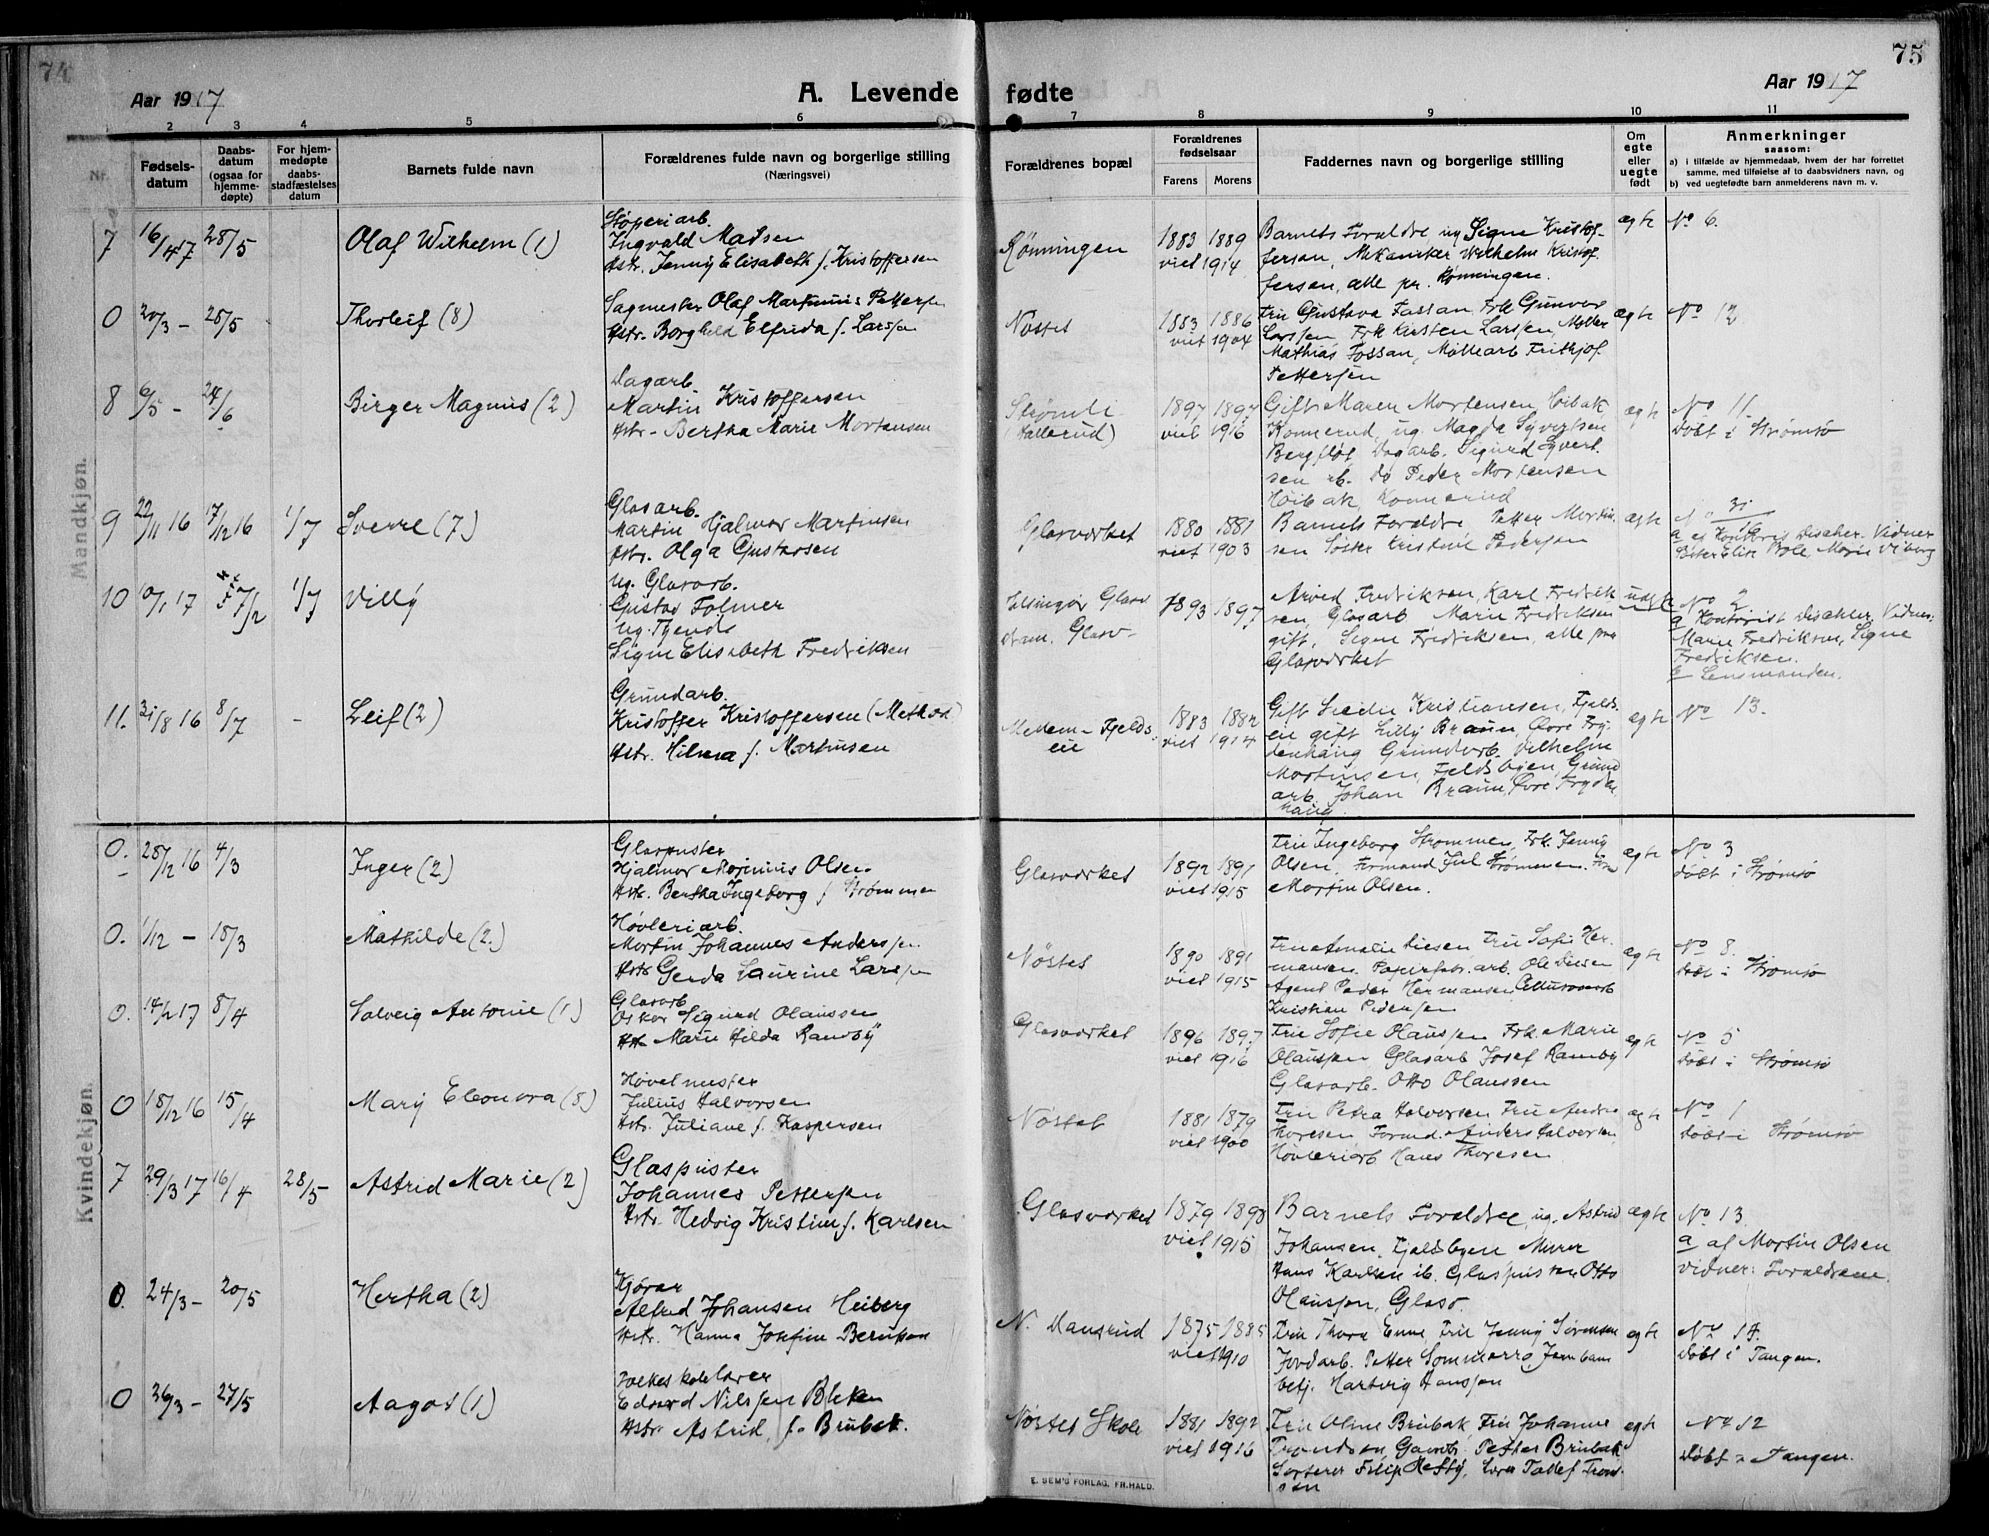 74
75
Aar 1917
A. Levende fødte
Aar 1917
2 3 4 5 6 7 8 9 10 11
Nr.
Fødsels-
datum
Daabs-
datum
(ogsaa for
hjemme-
døpte)
For hjem-
medøpte
daabs-
stadfæstelses
datum
Barnets fulde navn
Forældrenes fulde navn og borgerlige stilling
(Næringsvei)
Forældrenes bopæl
Forældrenes
fødselsaar
Farens Morens
Faddernes navn og borgerlige stilling
Om
egte
eller
uegte
født
Anmerkninger
saasom:
a) i tilfælde av hjemmedaab, hvem der har forrettet
samme, med tilføielse af to daabsvidners navn, og
b) ved uegtefødte barn anmelderens navn m. v.
Mandkjøn.
7 16/4 17 28/5 Olaf Wilhelm (1)
Støperiarb.
Ingvald Madsen
Hstr. Jenny Elisabeth f. Kristoffersen
Rønningen
1883 1889
viet 1914
Barnets Forældre ug Signe Kristof-
fersen, Mekaniker Wilhelm Kristof-
fersen, alle pr. Rønningen.
ægte No 6.
0 20/3 – 28/5 Thorleif (8)
Sagmester Olaf Martinius Pettersen
Hstr. Borghild Elfrida f. Larssen
Nøstet
1883 1886
viet 1904
Fru Gustava Fossan, Frk Gunvor
Larssen, Frk Kirsten Larssen, Møller
Mathias Fossan, Møllearb Frithjof
Pettersen
ægte No 12
8 6/5 – 24/6 Birger Magnus (2)
Dagarb.
Martin Kristoffersen
Hstr. Bertha Marie Mortensen
Strømli
(Hallerud)
1897 1897
viet 1916
Gift Maren Mortensen Høibak
Konnerud, ug. Magda Syvertsen
Bergfløt Dagarb. Sigurd Syvert-
sen ib. Do Peder Mortensen
Høibak, Konnerud
ægte No 11
Døbt i Strømsø
9 22/11 16 17/12 16 1/7 Sverre (7)
Glasarb.
Martin Hjalmar Martinsen
Hstr. Olga Gustavsen
Glasværket
1880 1881
viet 1903
Barnets Forældre Petter Martin-
sen Søster Kristine Pedersen
ægte No 31/16
a af Kontorist Discher. Vidner
Søster Elise Bole, Marie Viborg
10 10/1 17 7/2 1/7 Villy
Ug. Glasarb.
Gustav Folmer
Ug. Tjende
Signe Elisabeth Fredriksen
Helsingør Glasv
Dram. Glasv.
1893 1897
Arvid Fredriksen, Karl Fredrik-
sen, Glasarb Marie Fredriksen
gift, Signe Fredriksen, alle paa
Glasværket
No 2
a Kontorist Discher. Vidner:
Marie Fredriksen, Signe
Fredriksen.
b Lensmanden.
11. 31/8 16 8/7 – Leif (2)
Grundarb.
Kristoffer Kristoffersen (Method.)
Hstr. Hilma f. Martinsen
Mellem-Fjelds
eie
1883 1882
viet 1914
Gift Kristiansen, Fjelds-
eie gift Lilly Braun, Øvre Fry-
denhaug Grundarb. Vilhelm
Martinsen, Fjeldsbyen, Grund
arb. Johan Braun, Øvre Fryden-
haug
ægte No 13.
Kvindekjøn.
0. 28/12 16 4/3 Inger (2)
Glaspuster
Hjalmar Marinius Olsen
Hstr. Bertha Ingeborg f Strømmen
Glasværket
1892 1891
viet 1915
Fru Ingeborg Strømmen, Frk. Jenny
Olsen, Formand Jul Strømmen.
Martin Olsen.
ægte No 3
døbt i Strømsø
0. 1/12 – 18/3 Mathilde (2.)
Høvleriarb.
Martin Johannes Anderssen
Hstr Gerda Laurine Larssen
Nøstet
1890 1891
viet 1915
Fru Amalie Diesen, Fru Sofie Her-
mansen. Papirfabr. arb. Ole Diesen
Agent Peder Hermansen
Kristian Pedersen
ægte No 8.
Døbt i Strømsø
0. 14/2 17 8/4 Solveig Antonie (1)
Glasarb
Oskar Sigurd Olaussen
Hstr Marie Hilda Ramby
Glasværket
1896 1897
viet 1916
Fru Sofie Olaussen Frk. Marie
Olaussen Glasarb Josef Ramby
Glasarb. Otto Olaussen
ægte No 5
Døbt i Strømsø
0 18/12 16 15/4 Mary Eleonora (8)
Høvelmester
Julius Halvorsen
Hstr. Juliane f. Kaspersen
Nøstet
1881 1879
viet 1900
Fru Petra Halvorsen Fru Andrea
Thoresen Formd. Anders Halvorsen
Høvleriarb Hans Thoresen
ægte No 1
Døbt i Strømsø
7 29/3 17 16/4 28/5 Astrid Marie (2)
Glaspuster
Johannes Pettersen
Hstr. Hedvig Kristine f. Karlsen
Glasværket
1879 1898
viet 1915
Barnets Forældre, ug. Astrid
Johansen, Fjeldsbyen Murer
Hans Karlsen ib. Glaspuster Otto
Olaussen, Glasv.
ægte No 13
a af Martin Olsen
Vidner: Forældrene.
0. 24/3 – 20/5 Hertha (2)
Kjørar
Alfred Johansen Heiberg
Hstr. Hanna Josefine Berntsen
N. Dansrud
1875 1885
viet 1910
Fru Thora Enne, Fru Jenny Sørensen
Jordarb. Petter Sommerro, Jernbane
betj. Hartvig Hanssen
ægte No 14.
Døbt i Tangen.
0 26/3 – 27/5 Aagot (1)
Folkeskolelærer
Edvard Nilssen Bleken
Hstr Astrid, f. Brubak.
Nøstet Skole
1881 1892
viet 1916
Fru Oline Brubak, Fru Johanne
Trondsen Petter Brubak
Sorterer Filip Hefty, Lærer Tallef Trond-
sen
ægte No 12
Døbt i Tangen.
E. SEM'S FORLAG, FR.HALD.